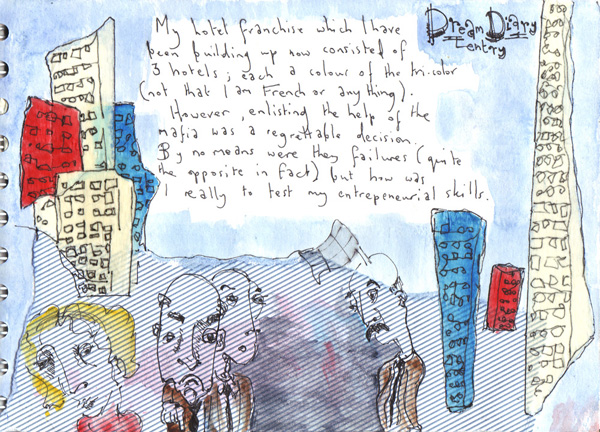 Dream Diary
Entry
My hotel franchise which I have
been building up now consisted of
3 hotels; each a colour of the tri-color
(not that I am French or anything).
However, enlisting the help of the
mafia was a regrettable decision.
By no means were they failures (quite
the opposite in fact) but how was
I really to test my entrepeneurial skills.